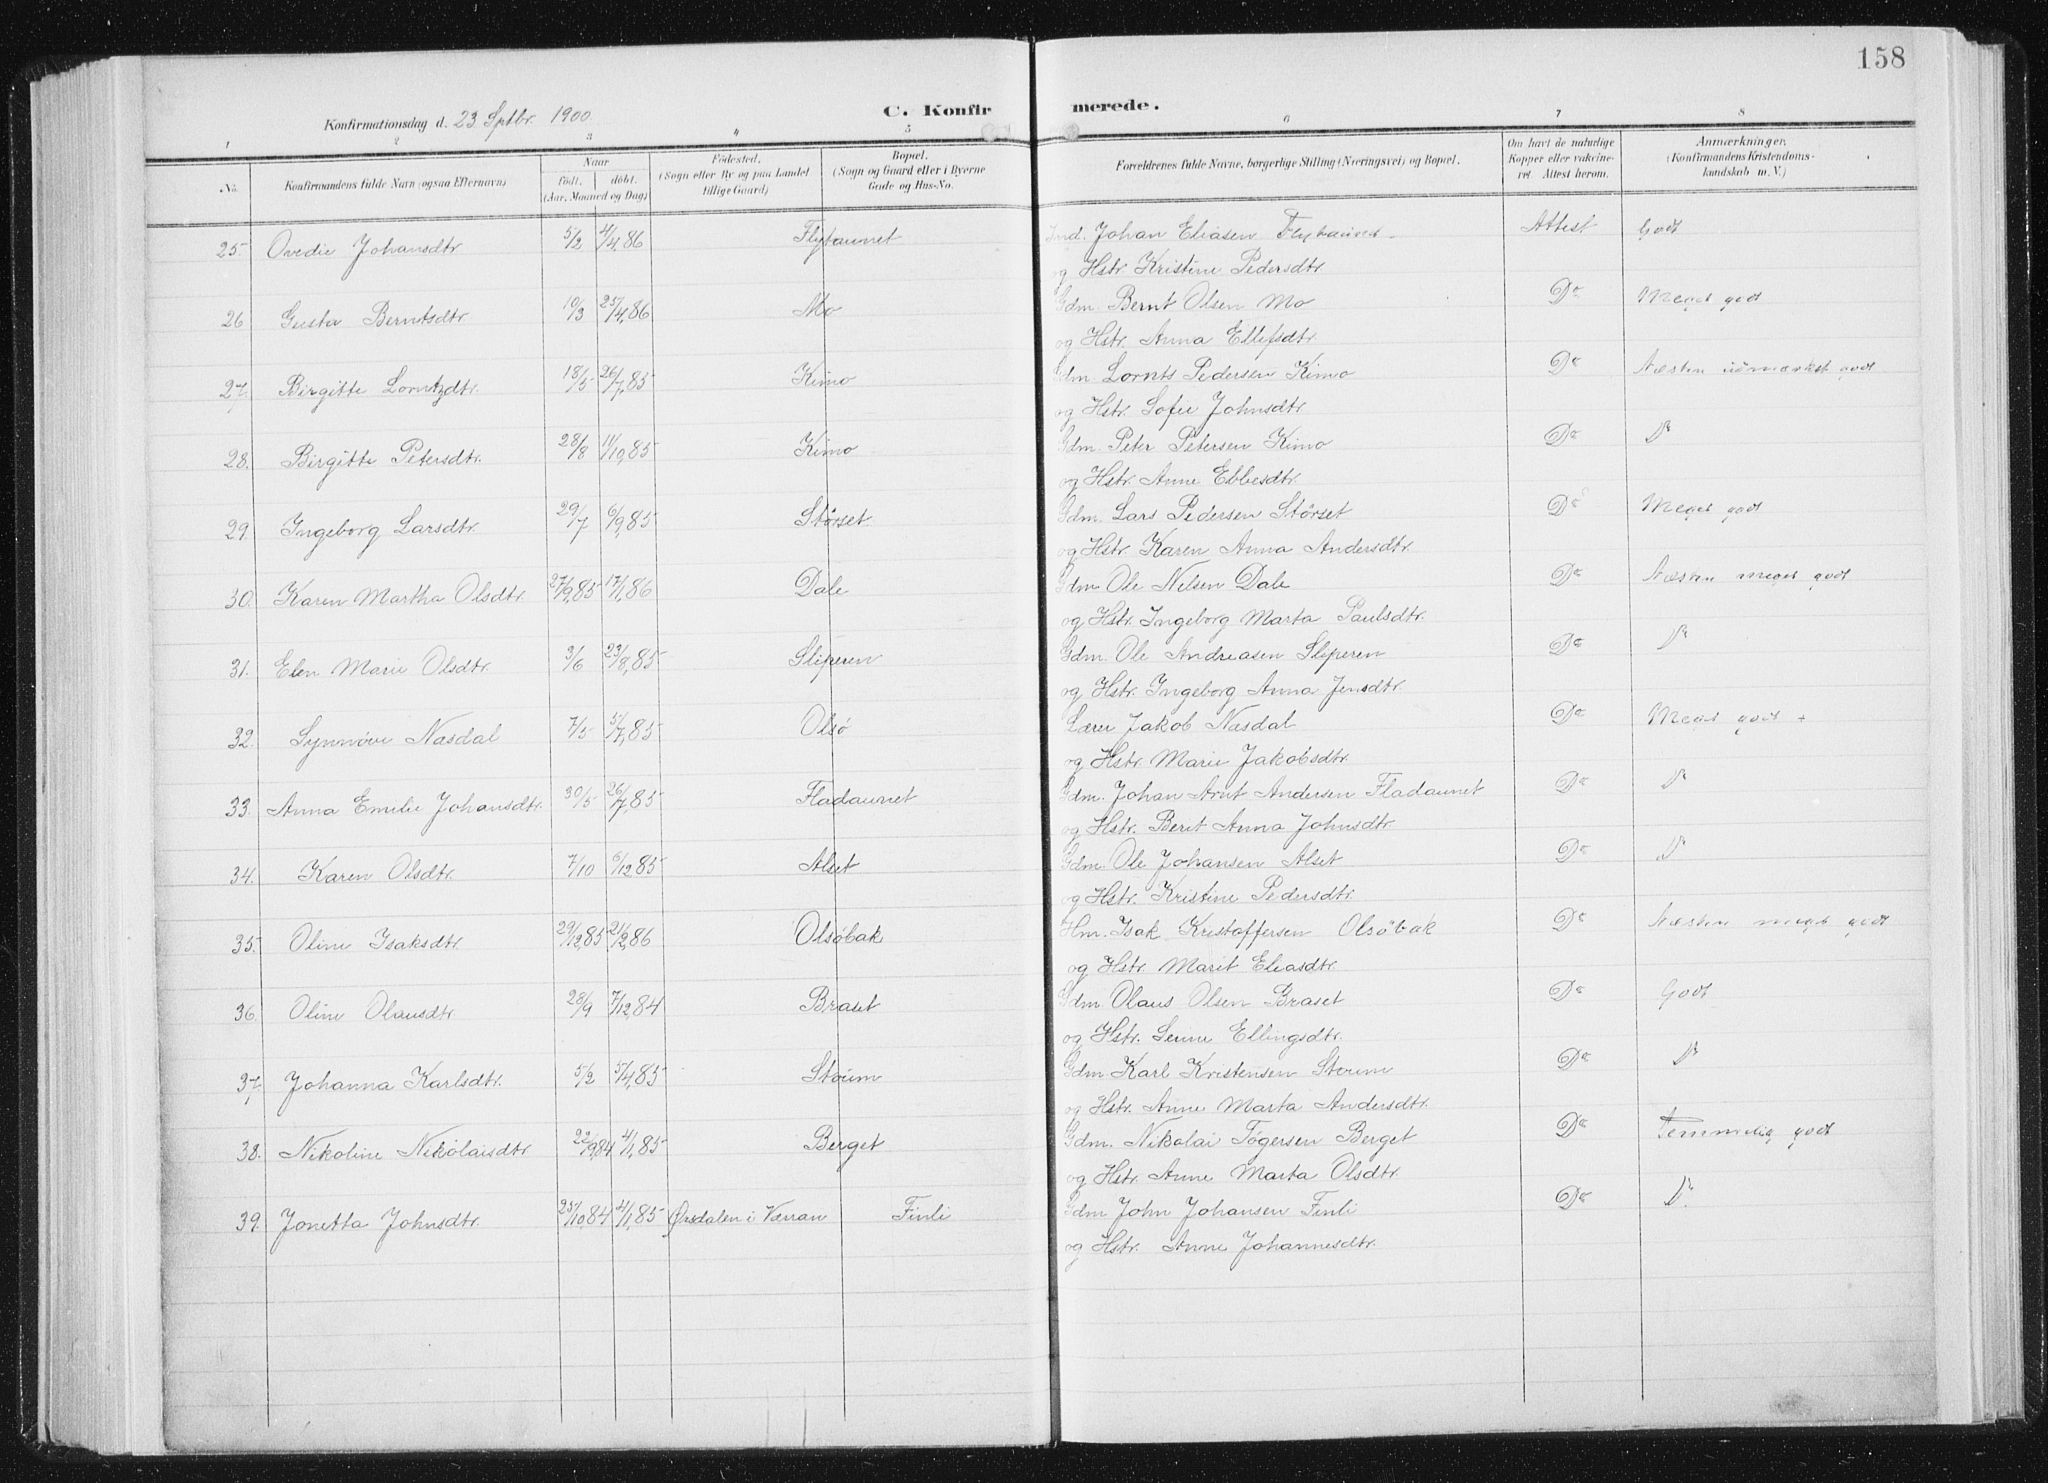 158
Konfirmationsdag d. 23 Sptbr. 1900.
C. Konfirmerede.
1 2 3 4 5 6 7 8
No. Konfirmandens fulde Navn (ogsaa Efternavn) Naar født, døbt. (Aar, Maaned og Dag) Fødested. (Sogn eller By og paa Landet tillige Gaard) Bopæl. (Sogn og Gaard eller i Byerne Gade og Hus-No. Forældrenes fulde Navne, borgerlige Stilling (Næringsvei) og Bopæl. Om havt de naturlige Kopper eller vakcineret. Attest herom. Anmærkninger. (Konfirmandens Kristendomskundskab m. V.)
25. Ovedie Johansdtr 5/2 4/4,86 Flytaunet Ind. Johan Eliasen Flytaunet Attest Godt
og Hstr. Kristine Pedersdtr
26 Gusta Berntsdtr. 10/3 25/4,86 Mo Gdm Bernt Olsen Mo Do Meget godt
og Hstr. Anna Ellefsdtr.
27. Birgitte Lorntzdtr. 18/5 26/7,85 Kimo Gdm. Lornts Pedersen Kimo Do Næsten udmærket godt
og Hstr. Sofie Johnsdtr.
28. Birgitte Petersdtr. 28/8 11/10,85 Kimo Gdm. Peter Petersen Kimo Do Do
og Hstr. Anne Ebbesdtr.
29. Ingeborg Larsdtr. 29/7 6/9,85 Størset Gdm. Lars Pedersen Størset Do Meget godt
og Hstr. Karen Anna Andersdtr.
30. Karen Martha Olsdtr. 27/9,85 17/1,86 Dale Gdm. Ole Nilsen Dale Do Næsten meget godt
og Hstr. Ingeborg Marta Paulsdtr.
31. Elen Marie Olsdtr. 3/6 23/8,85 Sliperen Gdm. Ole Andreasen Sliperen Do Do
og Hstr. Ingeborg Anna Jensdtr.
32. Synnøve Nasdal 7/5 5/7,85 Olsø Lærer Jakob Nasdal Do Meget godt +
og Hstr. Marie Jakobsdtr.
33. Anna Emilie Johansdtr. 30/5 26/7,85 Fladaunet Gdm. Johan Arnt Andersen Fladaunet Do Do
og Hstr. Berit Anna Johnsdtr.
34. Karen Olsdtr. 7/10 6/12,85 Alset Gdm. Ole Johansen Alset Do Do
og Hstr. Kristine Pedersdtr.
35. Oline Isaksdtr. 29/12,85 21/2,86 Olsøbak Hm. Isak Kristoffersen Olsøbak Do Næsten meget godt
og Hstr. Marit Eliasdtr.
36. Oline Olausdtr 28/9 7/12,84 Braset Gdm. Olaus Olsen Braset Do Godt
og Hstr. Serine Ellingsdtr.
37. Johanna Karlsdtr. 5/2 5/4,85 Stoum Gdm. Karl Kristensen Stoum Do Do
og Hstr. Anne Marta Andersdtr.
38. Nikoline Nikolaisdtr 22/9,84 4/1,85 Berget Gdm. Nikolai Togersen Berget Do Temmelig godt
og Hstr. Anne Marta Olsdtr.
39. Jonetta Johnsdtr. 25/10,84 4/1,85 Ørsdalen i Værran Finli Gdm John Johansen Finli Do Do
og Hstr. Anne Johannesdtr.